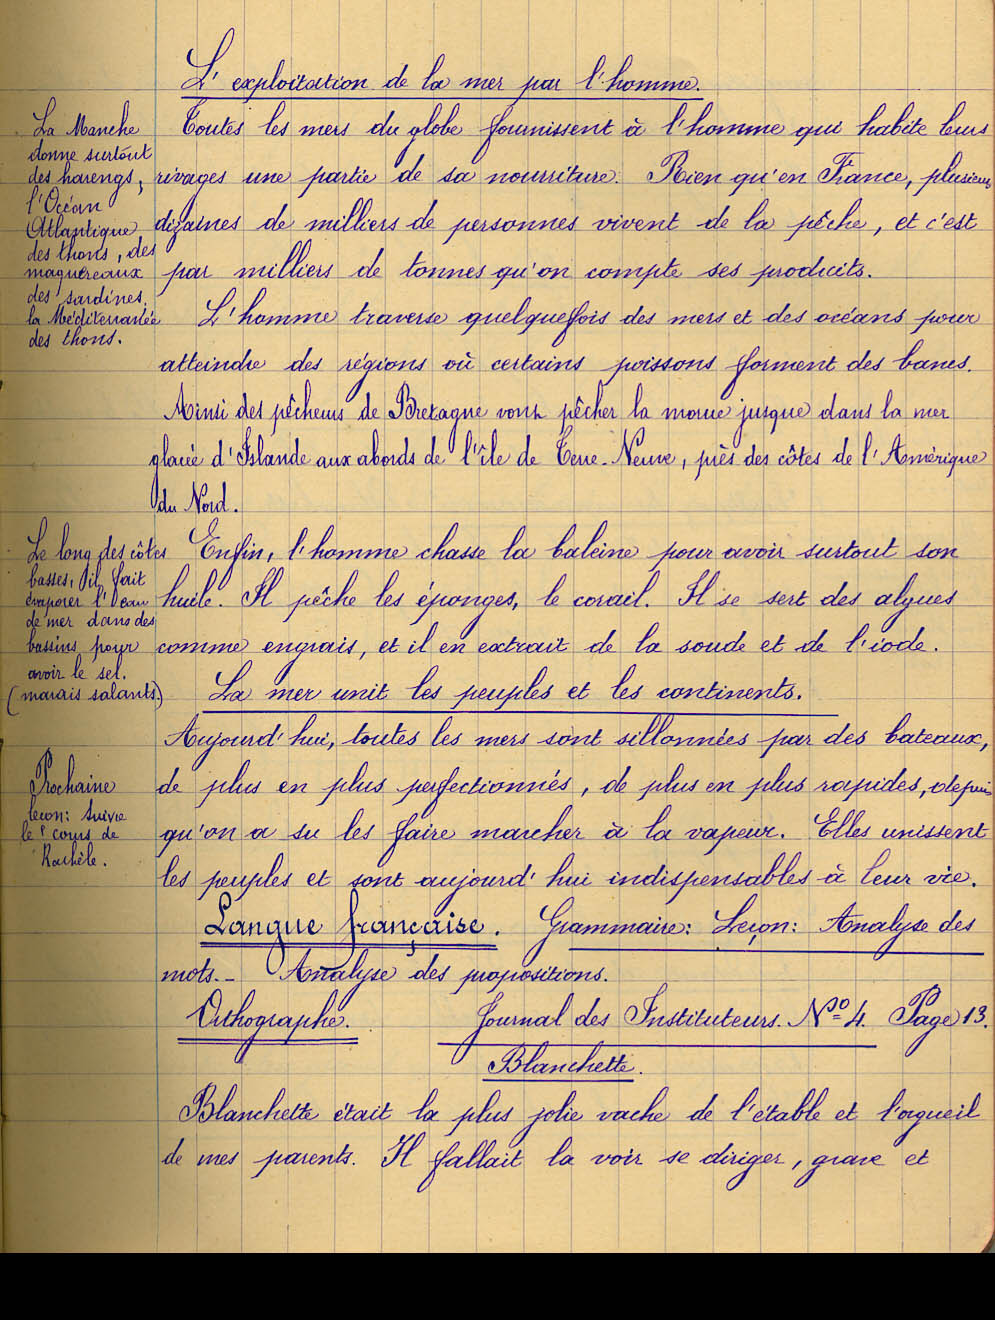 L'exploitation de la mer par l'homme.
La Manche
donne surtout
des harengs,
l'Océan
Atlantique
des thons, des
maquereaux
des sardines,
la Méditerranée
des thons.
Toutes les mers du globe fournissent à l'homme qui habite leurs
rivages une partie de sa nourriture. Rien qu'en France, plusieurs
dizaines de milliers de personnes vivent de la pêche, et c'est
par milliers de tonnes qu'on compte ses produits.
L'homme traverse quelquefois des mers et des océans pour
atteindre des régions où certains poissons forment des bancs.
Ainsi des pêcheurs de Bretagne vont pêcher la morue jusque dans la mer
glacée d'Islande aux abords de l'île de Terre-Neuve, près des côtes de l'Amérique
du Nord.
Le long des côtes
basses, il fait
évaporer l'eau
de mer dans des
bassins pour
avoir le sel.
(marais salants.)
Enfin, l'homme chasse la baleine pour avoir surtout son
huile. Il pêche les éponges, le corail. Il se sert des algues
comme engrais, et il en extrait de la soude et de l'iode.
La mer unit les peuples et les continents.
Aujourd'hui, toutes les mers sont sillonnées par des bateaux,
de plus en plus perfectionnés, de plus en plus rapides, depuis
qu'on a su les faire marcher à la vapeur. Elles unissent
les peuples et sont aujourd'hui indispensables à leur vie.
Prochaine
leçon: Suivre
le cours de
Rachèle.
Langue française. Grammaire: Leçon: Analyse des
mots.- Analyse des propositions.
Orthographe. Journal des Instituteurs. No 4. Page 13.
Blanchette.
Blanchette était la plus jolie vache de l'étable et l'orgueil
de mes parents. Il fallait la voir se diriger, grave et